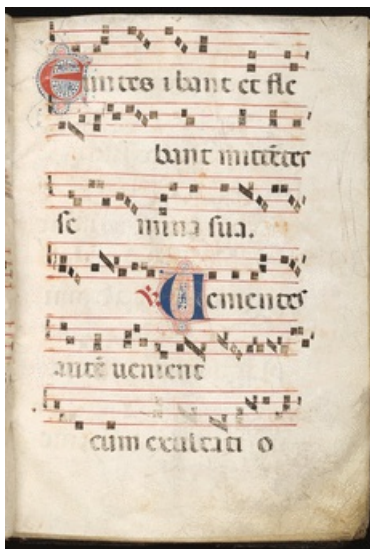 Euntes i bant et fle
bant mittētes
se mina sua.
℣. Uenientes
autē uenient
cum exultati o